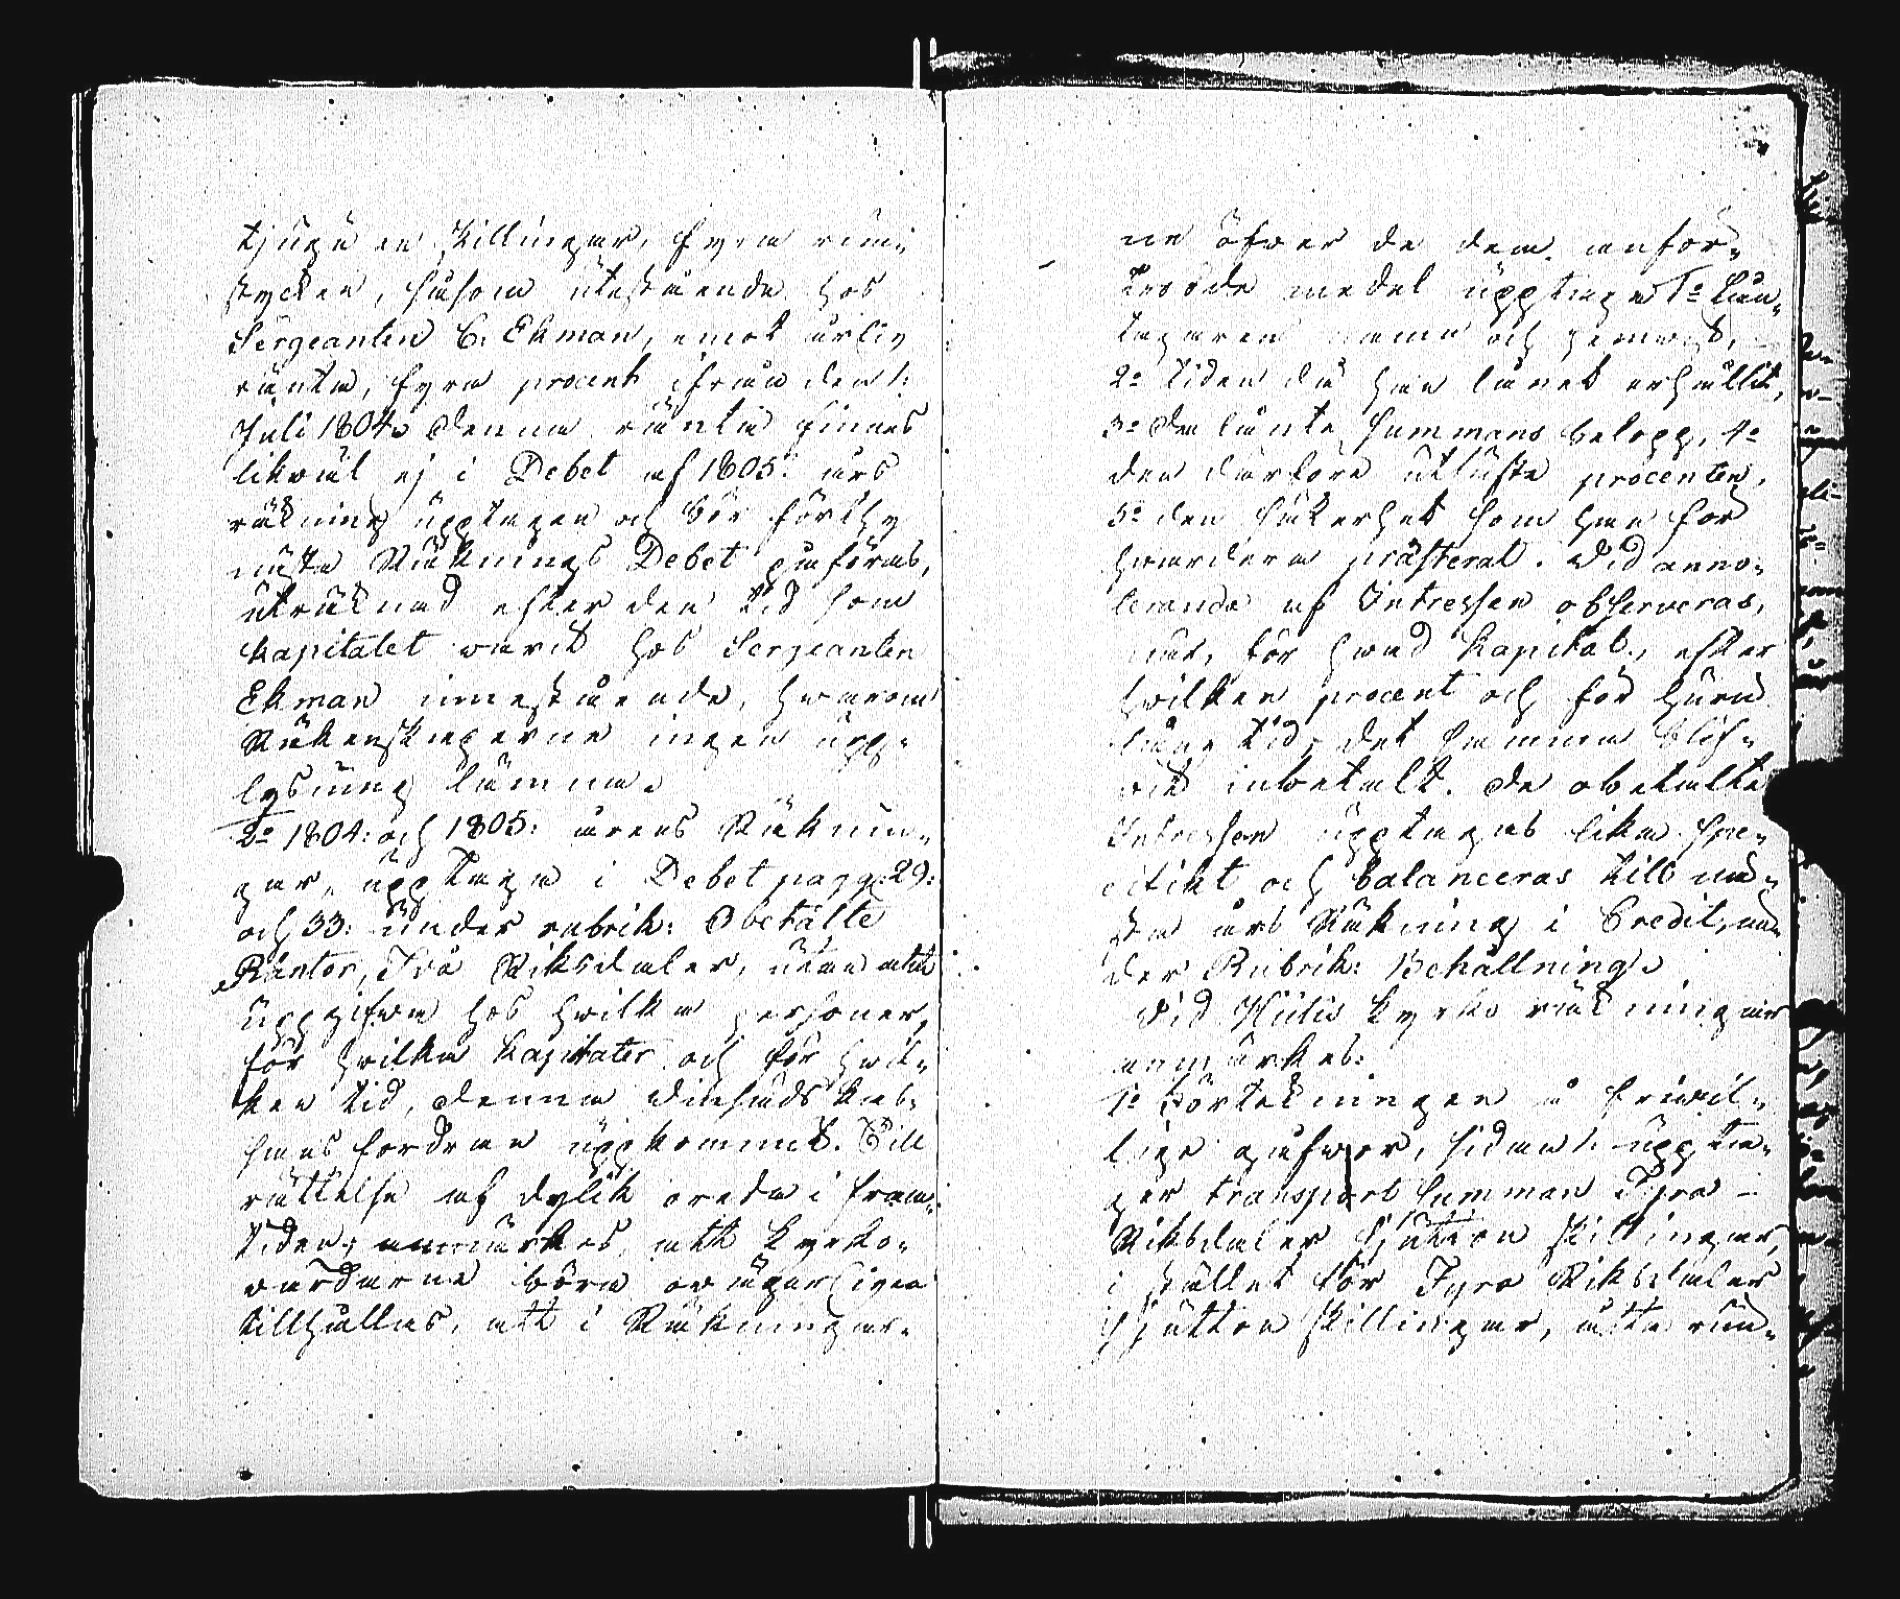 tjugu en skillingar, fyra run-
stycken, såsom utestående hos
Sergeanten C. Ekman, emot årlig
ränta, fyra procent ifrån den 1:
Juli 1804. Denna ränta finnes
likväl ej i Debet af 1805: års
räkning upptagen och bör förthy
nästa Räknings Debet påföras,
uträknad efter den tid som
Kapitalet varit hos Sergeanten
Ekman innestående, hvarom
Räkenskaperne ingen upp-
lysning lämna.
2º 1804: och 1805: årens Räknin-
gar, upptaga i Debet pagg: 29:
och 33: under rubrik: Obetalte
Räntor, Två Riksdaler, utan att
uppgifva hos hvilka personer,
för hvilka Kapitaler och för hvil-
ken tid, denna
fordran uppkommit. Till
rättelse af dylik oreda i fram-
tiden, anmärkes, att Kyrko-
vårdarne böra ovägerligen
tillhållas, att i Räkningar-
ne öfver de dem anför-
trodde medel upptaga 1º Lån-
tagaren namn och hemvist,
2º tiden då han lånet erhållit,
3º den lånte summans belopp, 4º
den därföre utfäste procenten,
5º den säkerhet som han för
hvardera præsterat. Vid anno-
terande af Intressen observeras,
när, för hvad Kapital, efter
hvilken procent och för huru
lång tid, det samma blif-
vit inbetalt. De obetalte
Intressen upptagas lika spe-
cifikt och balanceras till nä-
sta års Räkning i Credit, un-
der Rubrik: Behållning.
Vid Kyrko räkningar
anmärkes:
1º Förtekningen å frivil-
lige gåfvor, sidan 1: uppta-
ger transport summan Fyra
Riksdaler Sjutton skillingar,
i stället för Fyra Riksdaler
Sjutton skillingar, åtta run-